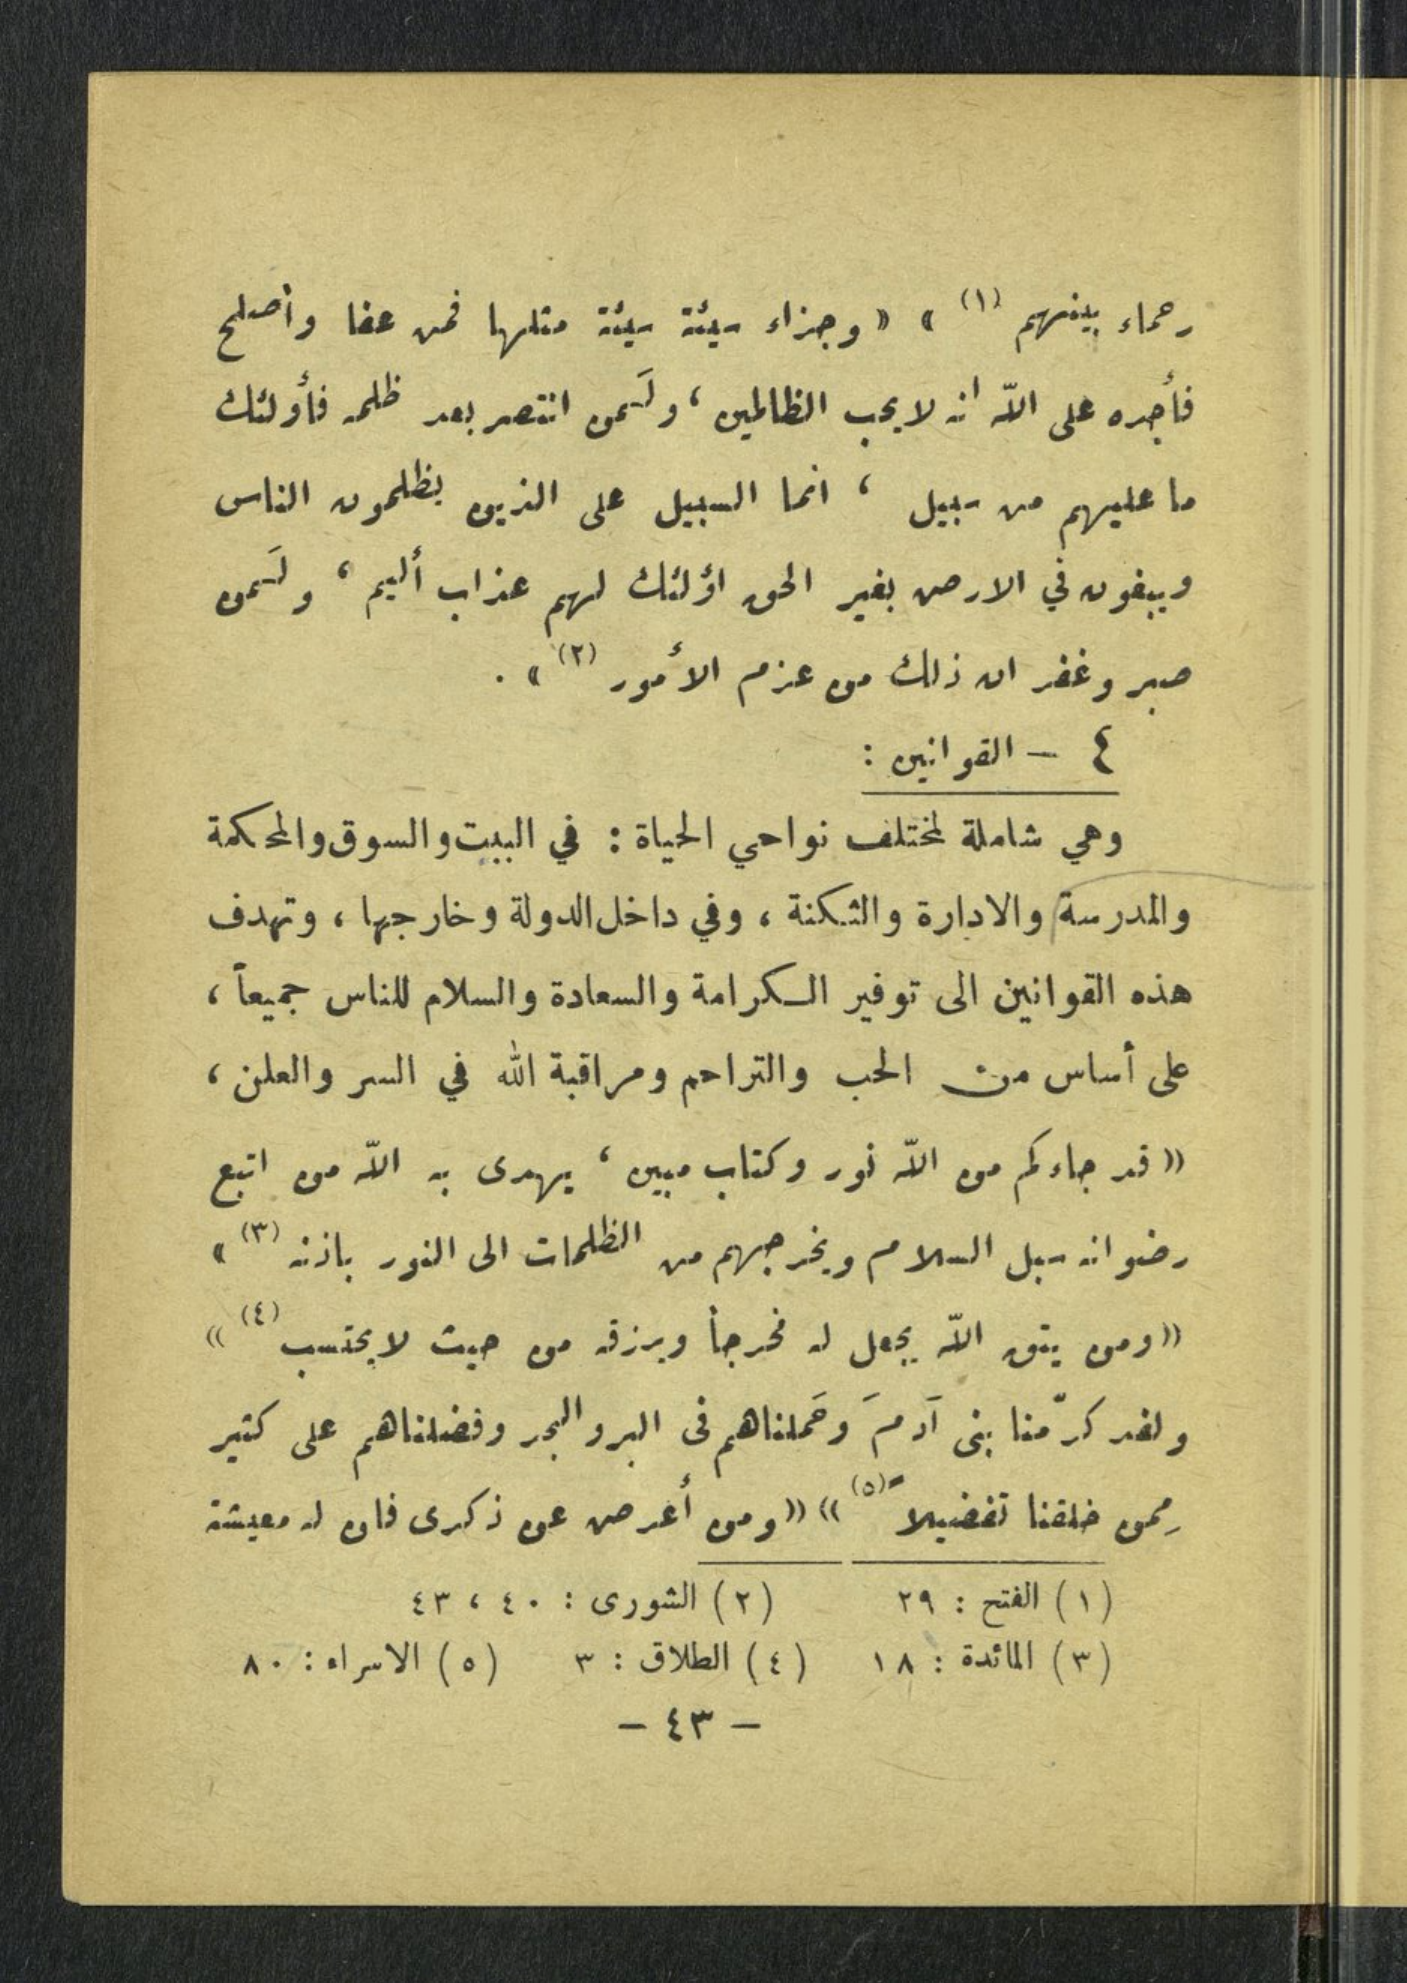 رحماء بينهم (١) » « وجزاء سيئة سيئة مثلها فمن عفا وأصلح
فأجره على الله انه لا يحب الظالمين ، ولَمن انتصر بعد ظلمه فأولئك
ما عليهم من سبيل ، انما السبيل على الذين يظلمون الناس
ويبغون في الارض بغير الحق اؤلئك لهم عذاب أليم ، ولَمن
صبر وغفر ان ذلك من عزم الأمور (٢) » .
٤ – القوانين :
وهي شاملة لمختلف نواحي الحياة : في البيت والسوق والمحكمة
والمدرسة والادارة والثكنة ، وفي داخل الدولة وخارجها ، وتهدف
هذه القوانين الى توفير الكرامة والسعادة والسلام للناس جميعاً ،
على أساس من الحب والتراحم ومراقبة الله في السر والعلن ،
« قد جاءكم من الله نور وكتاب مبين ، يهدى به الله من اتبع
رضوانه سبل السلام ويخرجهم من الظلمات الى النور باذنه (٣) »
« ومن يتق الله يجعل له مخرجاً ويرزقه من حيث لا يحتسب (٤) »
ولقد كرّمنا بنى آدمَ وحَملناهم فى البر والبحر وفضلناهم على كثير
مِمن خلقنا تفضيلاً (٥) » « ومن أعرض عن ذكرى فان له معيشة
(١) الفتح : ٢٩ (٢) الشورى : ٤٠ ، ٤٣
(٣) المائدة : ١٨ (٤) الطلاق : ٣ (٥) الاسراء : ٨٠
– ٤٣ –